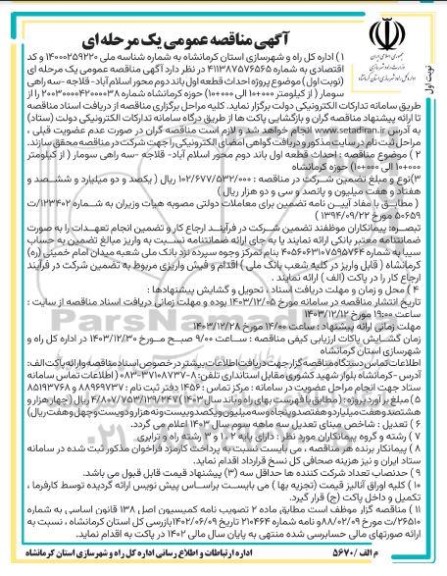 آگهی مناقصه عمومی یک مرحله ای
نوبت اول
۱) اداره کل راه و شهرسازی استان کرمانشاه به شماره شناسه ملی ۱۴۰۰۰۲۵۹۲۲۰ و کد
اقتصادی به شماره ۴۱۱۳۸۷۵۷۶۵۶۵ در نظر دارد آگهی مناقصه عمومی یک مرحله ای
(نوبت اول) موضوع پروژه احداث قطعه اول باند دوم محور اسلام آباد- قلاجه -سه راهی
سومار ( از کیلومتر ۱۰۰۰۰۰ الی ۱۰۰۰۰۰) حوزه کرمانشاه شماره ۲۰۰۳۰۰۰۰۴۲۰۰۰۰۳۸ را از
طریق سامانه تدارکات الکترونیکی دولت برگزار نماید. کلیه مراحل برگزاری مناقصه از دریافت اسناد مناقصه
تا ارائه پیشنهاد مناقصه گران و بازگشایی پاکت ها از طریق درگاه سامانه تدارکات الکترونیکی دولت (ستاد)
به آدرس : www.setadiran.ir انجام خواهد شد و لازم است مناقصه گران در صورت عدم عضویت قبلی ،
مراحل ثبت نام در سایت مذکور و دریافت گواهی امضای الکترونیکی را جهت شرکت در مناقصه محقق سازند.
۲ ) موضوع مناقصه : احداث قطعه اول باند دوم محور اسلام آباد- قلاجه -سه راهی سومار ( از کیلومتر
حوزه کرمانشاه
۳)نوع و مبلغ تضمین شرکت در مناقصه : ۱۰۲/۶۷۷/۵۳۲/۰۰۰ ریال ( یکصد و دو میلیارد و ششصد و
هفتاد و هفت میلیون و پانصد و سی و دو هزار ریال )
( مطابق با مفاد آیین نامه تضمین برای معاملات دولتی مصوبه هیات وزیران به شماره ۱۲۳۴۰۲/ت
۵۰۶۵۹ مورخ ۱۳۹۴/۰۹/۲۲)
تبصره: پیمانکاران موظفند تضمین شرکت در فرآیند ارجاع کار و تضمین انجام تعهدات را به صورت
ضمانتنامه معتبر بانکی ارائه نمایند یا به جای ارائه ضمانتنامه نسبت به واریز مبالغ تضمین به حساب
سیبا به شماره بنام تمرکز وجوه سپرده نزد بانک ملی شعبه میدان امام خمینی (ره)
کرمانشاه ( قابل واریز در کلیه شعب بانک ملی ) اقدام و فیش واریزی مربوط به تضمین شرکت در فرآیند
ارجاع کار را در پاکت (الف ) ارائه نمایند .
۴ ) محل و زمان و مهلت دریافت اسناد ، تحویل و گشایش پیشنهادها :
تاریخ انتشار مناقصه در سامانه مورخ ۱۴۰۳/۱۲/۰۵ بوده و مهلت زمانی دریافت اسناد مناقصه از سایت :
ساعت ۱۹:۰۰ مورخ ۱۴۰۳/۱۲/۱۲
مهلت زمانی ارائه پیشنهاد : ساعت ۱۴:۰۰ مورخ ۱۴۰۳/۱۲/۲۸
زمان گشایش پاکات ارزیابی کیفی مناقصه : ساعت ۹/۰۰ صبح مورخ ۱۴۰۳/۱۲/۳۰ در اداره کل راه و
شهرسازی استان کرمانشاه
اطلاعات تماس دستگاه مناقصه گزار جهت دریافت اطلاعات بیشتر در خصوص اسناد مناقصه و ارائه پاکت الف:
آدرس -کرمانشاه بلوار شهید کشوری مقابل استانداری تلفن: ۸-۳۷۱۰۸۷۳۷-۰۸۳ ( اطلاعات تماس سامانه
ستاد جهت انجام مراحل عضویت در سامانه : مرکز تماس : 1456 دفتر ثبت نام : ۸۸۹۶۹۷۳۷ و ۸۵۱۹۳۷۶۸
۵) مبلغ برآورد پروژه: ( مطابق با فهرست بهای راه و باند سال ۱۴۰۳) ۴/۸۰۷/۷۵۳/۱۲۹/۲۴۷ ریال (چهار هزار و
هشتصد و هفت میلیارد و هفتصد و پنجاه و سه میلیون و یکصد و بیست و نه هزار و دویست و چهل و هفت ریال)
۶ ) تعدیل : شاخص مبنای تعدیل سه ماهه سوم سال ۱۴۰۳ اعلام می گردد.
۷ ) رشته و گروه پیمانکاران مورد نظر : دارای پایه ۲ ، ۱ و ۳ رشته راه و ترابری.
۸ ) پیمانکار برنده هر مناقصه ، می بایست نسبت به پرداخت کارمزد فراخوان مذکور ثبت شده در سامانه
ستاد ایران و نیز هزینه صحافی کل نسخ قرارداد اقدام نماید.
۹) حدنصاب تعداد شرکت کننده ها حداقل سه (۳) پیشنهاد قیمت قابل قبول می باشد.
۱۰ ) کلیه اوراق آنالیز قیمت (تجزیه بها ) می بایست براساس پیش نویس ارائه گردیده توسط کارفرما ،
تکمیل و داخل پاکت (ج) قرار گیرد.
۱۱) مناقصه گزار موظف است مطابق ماده ۲ تصویب نامه کمیسیون اصل ۱۳۸ قانون اساسی به شماره
۲۶۵۱۰/ت مورخ ۸۸/۰۲/۰۹ و نامه شماره ۲۱۰۴۶۴ تاریخ ۱۴۰۲/۰۶/۰۹ بازرسی کل استان کرمانشاه ، نسبت به
ارائه صورتهای مالی حسابرسی شده منتهی به پایان سال مالی ۱۴۰۲ در پاکت به اقدام نماید.
م الف / ۵۶۷۰
اداره ارتباطات و اطلاع رسانی اداره کل راه و شهرسازی استان کرمانشاه